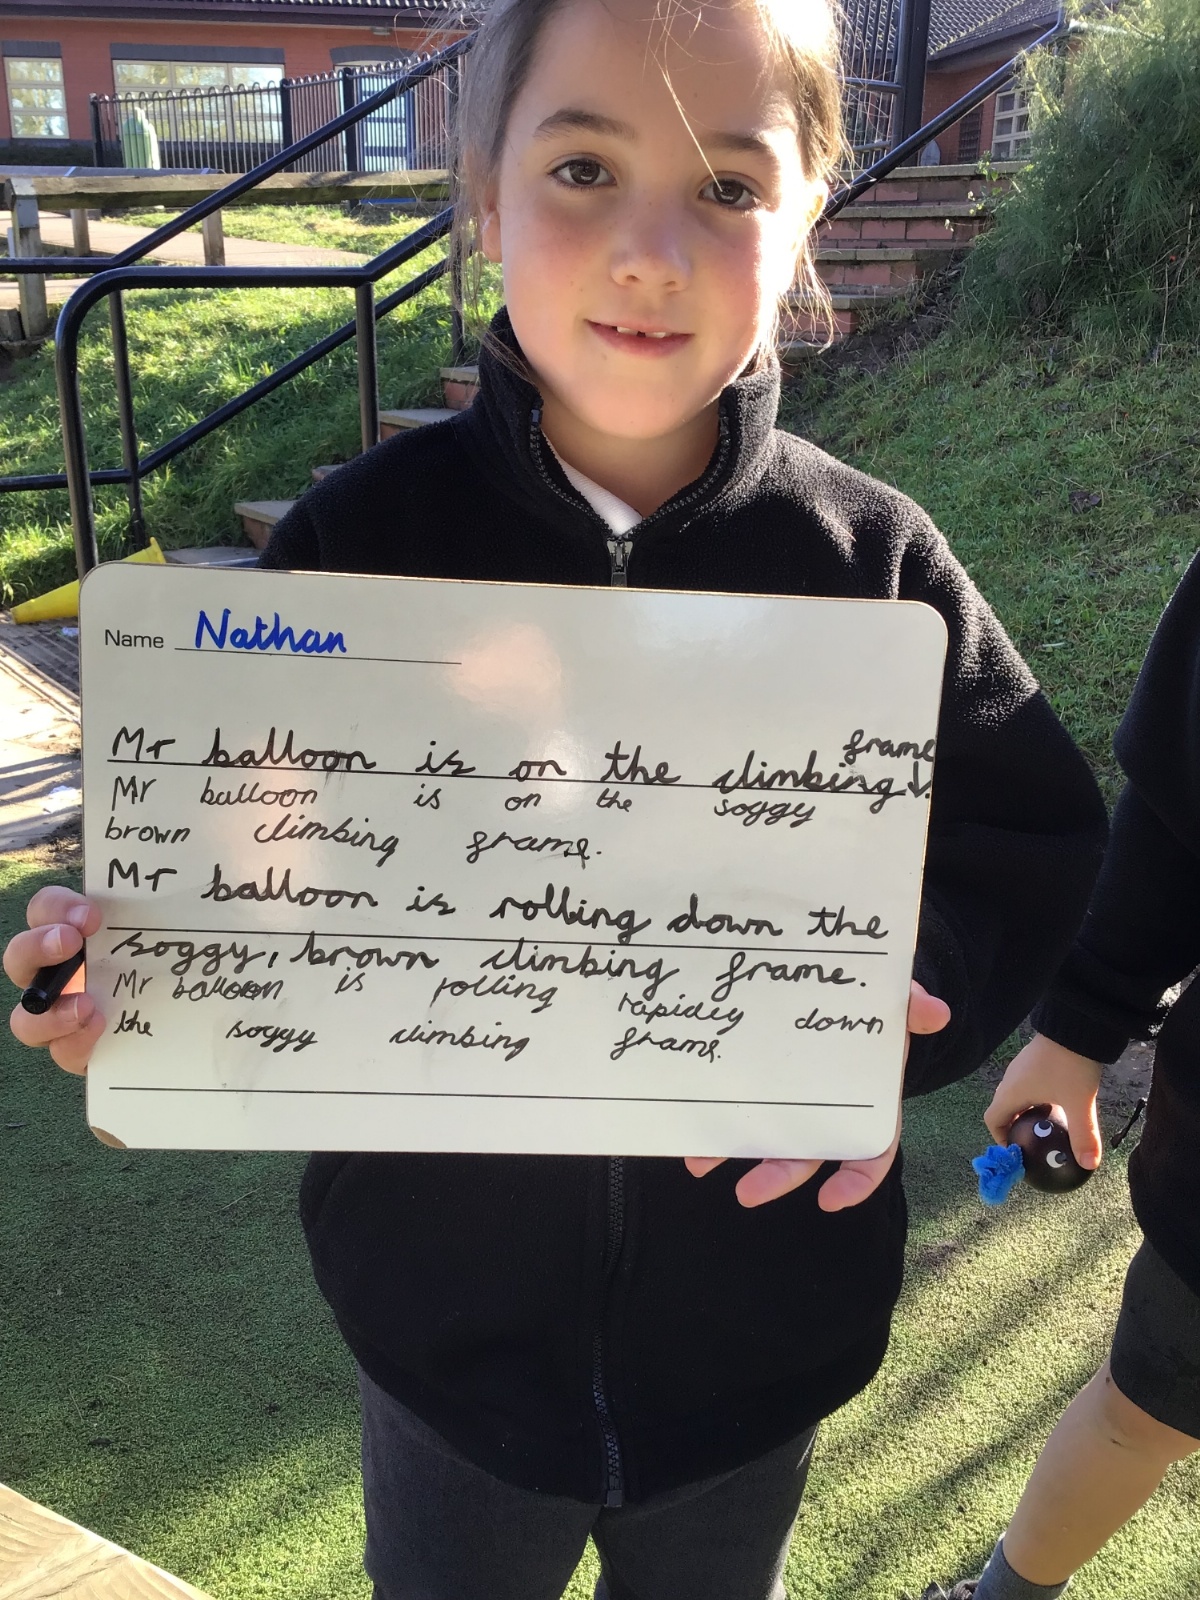 Name Nathan
frame
Mr balloon is on the climbing ↓.
Mr balloon is on the soggy
brown climbing frame.
Mr balloon is rolling down the
soggy, brown climbing frame.
Mr balloon is rolling rapidey down
the soggy climbing frame.